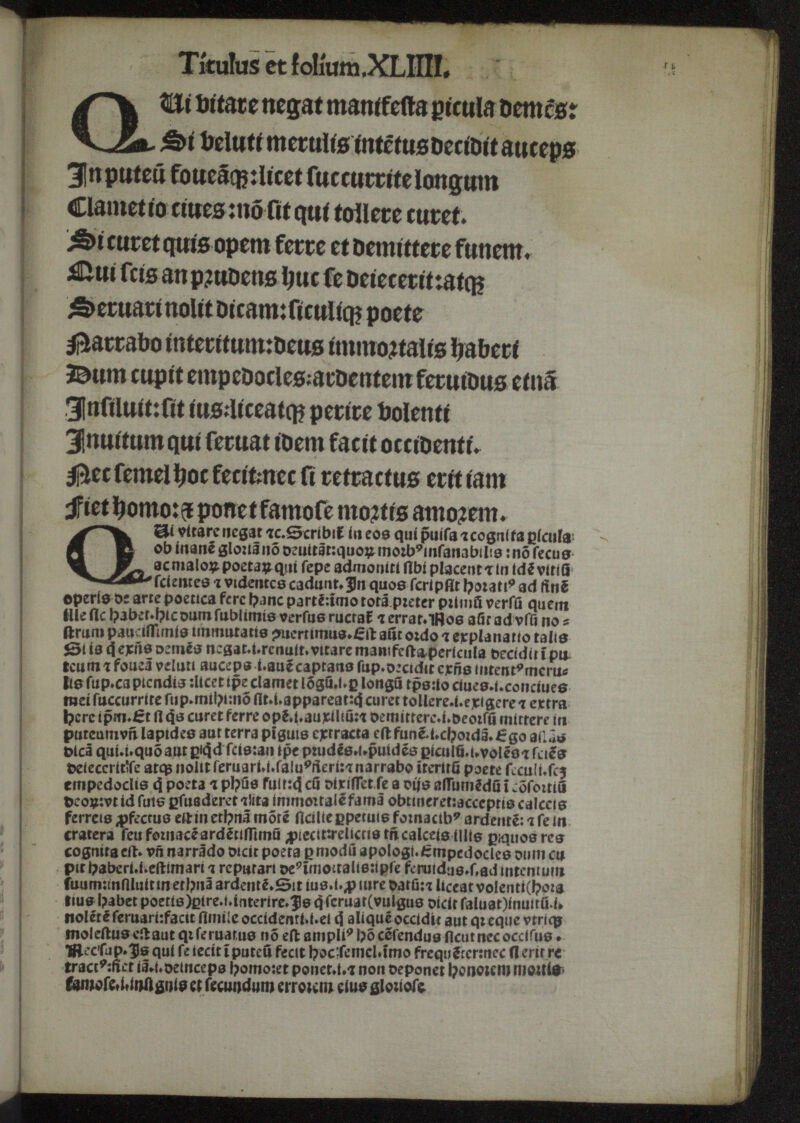 Titulus et folium.XLIIII.
QUi vitare negat manifesta picula demēs:
Si veluti merulis intētus decidit auceps
In puteū foueāqꝫ: licet succurrite longum
Clamet io ciues: nō sit qui tollere curet.
Si curet quis opem ferre et demittere funem.
Qui scis an prudens huc se deiecerit: atqꝫ
Seruari nolit dicam: siculiqꝫ poete
Narrabo interitum: deus immortalis haberi
Dum cupit empedocles: ardentem feruidus etnā
Insiluit: sit ius: liceatqꝫ perire volenti
Inuitum qui seruat idem facit occidenti.
Nec semel hoc fecit: nec si retractus erit iam
Fiet homo: ⁊ ponet famose mortis amorem.
QUi vitare negat ⁊c. Scribit in eos qui p̄uisa ⁊ cognita picula
ob inanē gloriā nō deuitāt: quoꝝ morbꝰ insanabilis: nō secus
ac maloꝝ poetaꝝ qui sepe admoniti sibi placent ⁊ in idē vitiū
scientes ⁊ videntes cadunt. In quos scripsit horatiꝰ ad finē
operis de arte poetica fere hanc partē: imo totā preter primū versū quem
ille sic habet. hic dum sublimis versus ructat̄ ⁊ errat. Nos aūt ad vsū no-
strum paucissimis immutatis ꝯuertimus. Est aūt ordo ⁊ explanatio talis
Si is q̄ exn̄s demēs negat .i. renuit. vitare manifesta pericula decidit ī pu
teum ⁊ foueā veluti auceps .i. auē captans sup. decidit exn̄s intentꝰ meru-
lis sup. capiendis: licet ip̄e clamet lōgū .i. ꝑ longū tp̄s: io ciues .i. conciues
mei succurrite sup. mihi: nō sit .i. appareat: q̄ curet tollere .i. erigere ⁊ extra
here ip̄m. Et si q̄s curet ferre opē .i. auxiliū: ⁊ demittere .i. deorsū mittere in
puteum vn̄ lapides aut terra pīguis extracta est funē .i. chordā. Ego
dicā qui .i. quō aut ꝑ qd̄ scis: an ip̄e prudēs .i. p̄uidēs piculū .i. volēs ⁊ sciēs
deiecerit se atqꝫ nolit seruari .i. saluꝰ fieri: ⁊ narrabo īteritū poete siculi. scꝫ
empedoclis q̄ poeta ⁊ ph̄us fuit: q̄ cū dixisset se a dijs assumēdū ī cōsortiū
deoꝝ: vt id suis ꝑsuaderet ⁊ ita immortalē famā obtineret: acceptis calceis
ferreis ꝓfectus est in ethnā mōtē sicilie ꝑpetuis fornacibꝰ ardentē: ⁊ se in
cratera seu fornacē ardētissimū ꝓiecit: relictis tn̄ calceis illis ꝑ quos res
cognita est. vn̄ narrādo dicit poeta ꝑ modū apologi. Empedocles dum cu
pit haberi .i. estimari ⁊ reputari deꝰ īmortalis: ipse feruidus .s. ad intentum
suum: insiluit in ethnā ardentē. Sit ius .i. ꝓ iure datū: ⁊ liceat volenti (hora
tius habet poetis) ꝑire .i. interire. Is q̄ seruat (vulgus dicit saluat) inuitū .i.
nolētē seruari: facit simile occidenti .i. ei q̄ aliquē occidit aut qꝛ eque vtriqꝫ
molestus est aut qꝛ seruatus nō est ampliꝰ hō cēsendus sicut nec occisus.
Nec sup. Is qui se iecit ī puteū fecit hoc semel. īmo frequēter: nec si erit re
tractꝰ: fiet iā .i. deinceps homo: et ponet .i. ⁊ non deponet honorem mortis
famose .i. insignis et secundum errorem eius gloriose